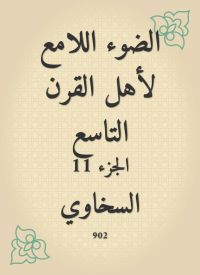 الضوء اللامع
لأهل القرن
التاسع
الجزء 11
السخاوي
902